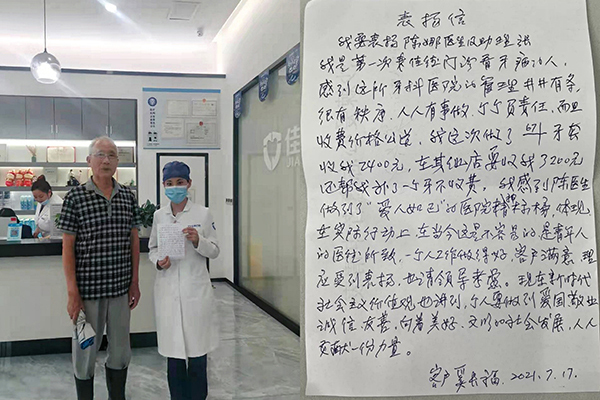 佳
JIA
表扬信
我要表扬陈娜医生及助理
我是第一次来佳德门诊看牙病的人,
感到这所牙科医院的管理井井有条,
很有秩序,人人有事做,个个负责任,而且
收费价格公道,我这次做了 牙套
收我2400元,在其他店要收我3200元
还帮我补了一个牙不收费,我感到陈医生
做到了“爱人如己”的医院精 榜,体现
在实际行动上,在当今这是不容易的是青年人
的医住所致,一个人工作做得好,客户满意,理
应受到表扬,也请领导考虑。现在新时代
社会主义价值观,也讲到,个人要做到爱国敬业
诚信友善,向着美好、文明的社会发展,人人
贡献一份力量。
客户 长福 2021.7.17.